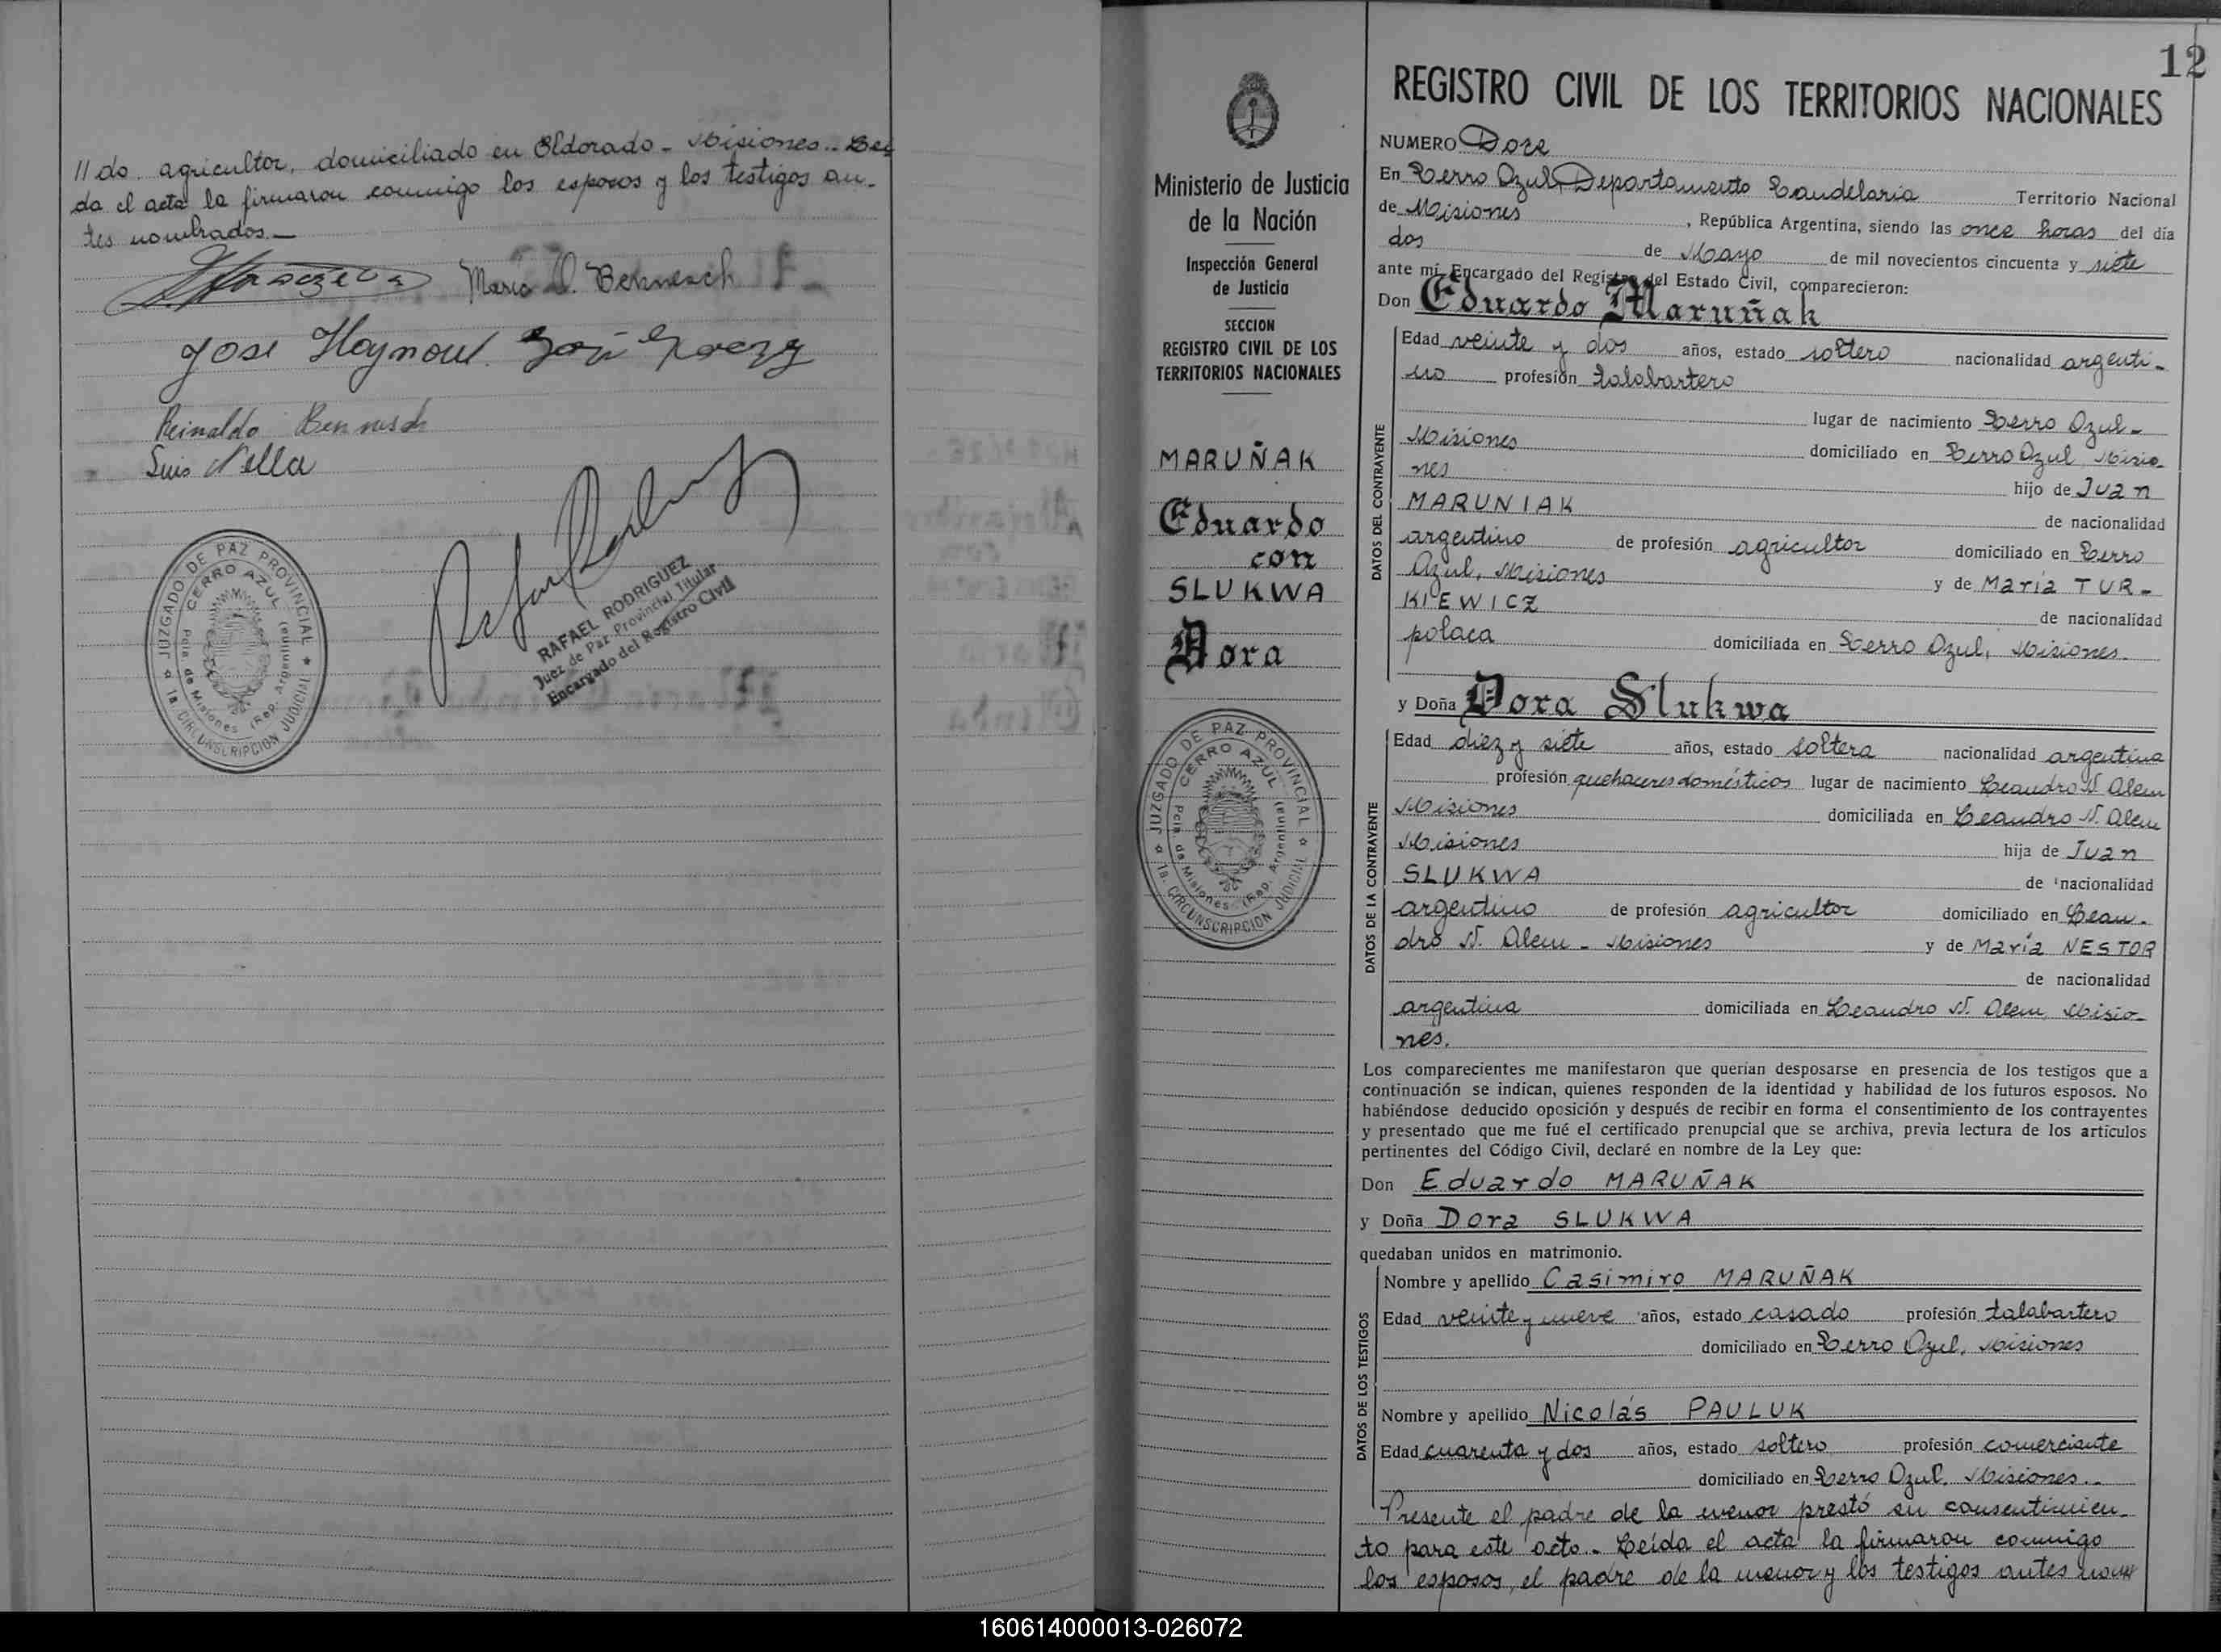 //do. agricultor, domiciliado en Eldorado - Misiones.- Leí
da el acta la firmaron conmigo los esposos y los testigos an-
tes nombrados.-
Maria O. Behnesch
Jose
Reinaldo Bennesch
Luis Nella
JUZGADO DE PAZ PROVINCIAL
CERRO AZUL
Pcia. de Misiones (Rep. Argentina)
1a. CIRCUNSCRIPCION JUDICIAL
RAFAEL RODRIGUEZ
Juez de Paz Provincial Titular
Encargado del Registro Civil
12
Ministerio de Justicia
de la Nación
Inspección General
de Justicia
SECCION
REGISTRO CIVIL DE LOS
TERRITORIOS NACIONALES
MARUÑAK
Eduardo
con
SLUKWA
Dora
JUZGADO DE PAZ PROVINCIAL
CERRO AZUL
Pcia. de Misiones (Rep. Argentina)
1a. CIRCUNSCRIPCION JUDICIAL
REGISTRO CIVIL DE LOS TERRITORIOS NACIONALES
NUMERO Doce
En Cerro Azul, Departamento Candelaria Territorio Nacional
de Misiones, República Argentina, siendo las once horas del día
dos de Mayo de mil novecientos cincuenta y siete
ante mí, Encargado del Registro del Estado Civil, comparecieron:
Don Eduardo Maruñak
DATOS DEL CONTRAYENTE
Edad veinte y dos años, estado soltero nacionalidad argenti-
no profesión talabartero
lugar de nacimiento Cerro Azul-
Misiones domiciliado en Cerro Azul Misio-
nes hijo de Juan
MARUNIAK de nacionalidad
argentino de profesión agricultor domiciliado en Cerro
Azul, Misiones y de María TUR-
KIEWICZ de nacionalidad
polaca domiciliada en Cerro Azul, Misiones.
y Doña Dora Slukwa
DATOS DE LA CONTRAYENTE
Edad diez y siete años, estado soltera nacionalidad argentina
profesión quehaceres domésticos lugar de nacimiento Leandro N. Alem
Misiones domiciliada en Leandro N. Alem
Misiones hija de Juan
SLUKWA de nacionalidad
argentino de profesión agricultor domiciliado en Lean-
dro N. Alem - Misiones y de María NESTOR
de nacionalidad
argentina domiciliada en Leandro N. Alem, Misio-
nes.
Los comparecientes me manifestaron que querían desposarse en presencia de los testigos que a
continuación se indican, quienes responden de la identidad y habilidad de los futuros esposos. No
habiéndose deducido oposición y después de recibir en forma el consentimiento de los contrayentes
y presentado que me fué el certificado prenupcial que se archiva, previa lectura de los artículos
pertinentes del Código Civil, declaré en nombre de la Ley que:
Don Eduardo MARUÑAK
y Doña Dora SLUKWA
quedaban unidos en matrimonio.
DATOS DE LOS TESTIGOS
Nombre y apellido Casimiro MARUÑAK
Edad veinte y nueve años, estado casado profesión talabartero
domiciliado en Cerro Azul, Misiones
Nombre y apellido Nicolás PAULUK
Edad cuarenta y dos años, estado soltero profesión comerciante
domiciliado en Cerro Azul, Misiones.-
Presente el padre de la menor prestó su consentimien-
to para este acto.- Leída el acta la firmaron conmigo
los esposos, el padre de la menor y los testigos antes nom//
160614000013-026072